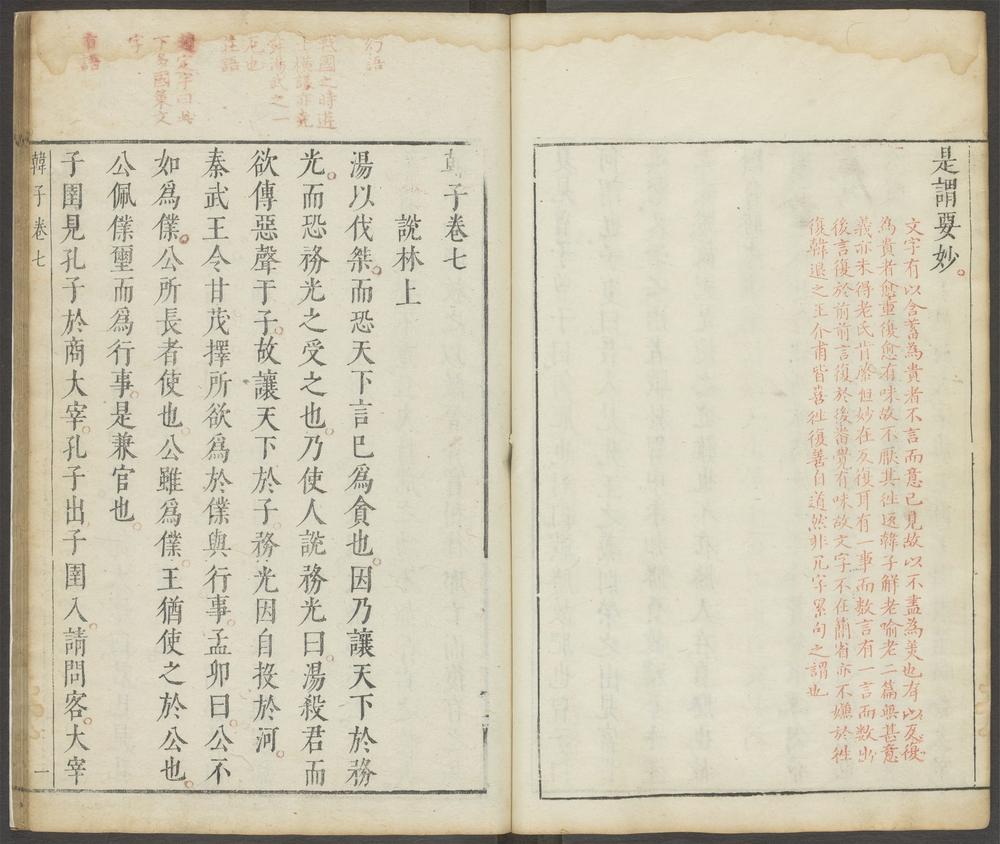 是謂要妙。
文字有以含蓄為貴者不言而意已見故以不盡為美也有以反復
為貴者愈重復愈有味故不厭其徃返韓子解老喻老二篇無甚意
義亦未得老氏肯綮但妙在反復耳有一事而数言有一言而数出
後言復於前前言復於後畨覺有味故文字不在簡省亦不嫌於徃
復韓退之王介甫皆喜徃復善自道然非冗字累句之謂也
幻語
戰國之時遊
士橫議亦堯
舜湯武之一
厄也
註語
下多國策文
字
韓子卷七
說林上
湯以伐桀。而恐天下言巳爲貪也。因乃讓天下於務
光。而恐務光之受之也。乃使人說務光曰。湯殺君而
欲傳惡聲于子。故讓天下於子。務光因自投於河。
秦武王令甘茂擇所欲爲於僕與行事。孟卯曰。公不
如爲僕。公所長者使也。公雖爲僕。王猶使之於公也。
公佩僕璽而爲行事。是兼官也。
子圉見孔子於商大宰。孔子出。子圉入。請問客。大宰
韓子卷七
一